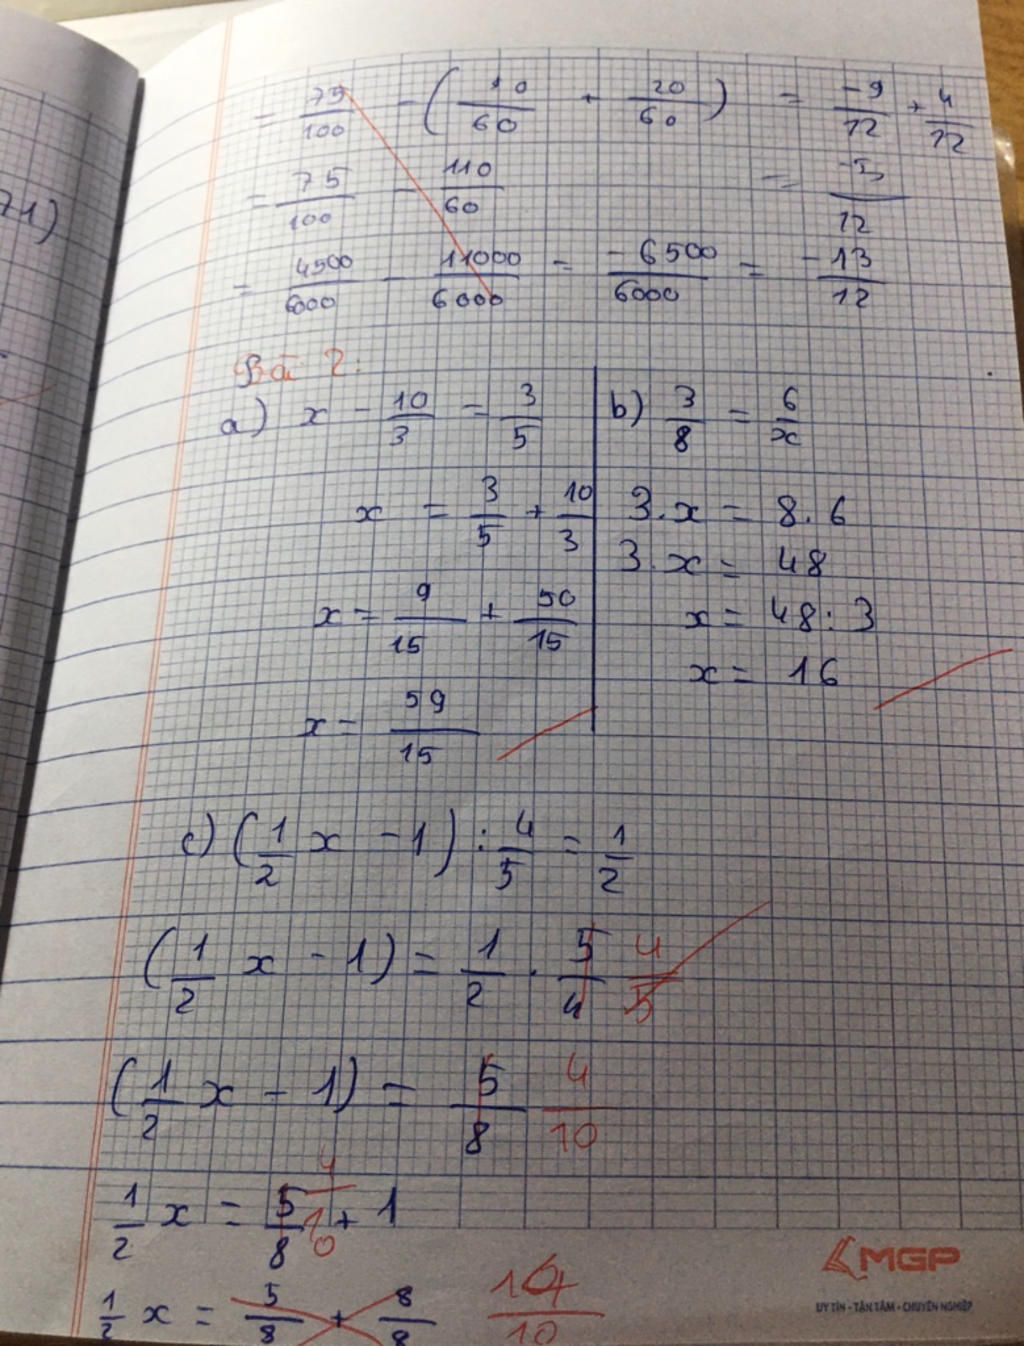 71)
= 75/100 - (90/60 + 20/60) = -9/12 + 4/12
= 75/100 - 110/60 = -5/12
= 4500/6000 - 11000/6000 = -6500/6000 = -13/12
Bài 2:
a) x - 10/3 = 3/5
x = 3/5 + 10/3
x = 9/15 + 50/15
x = 59/15
b) 3/8 = 6/x
3.x = 8.6
3.x = 48
x = 48:3
x = 16
c) (1/2 x - 1) : 4/5 = 1/2
(1/2 x - 1) = 1/2 . 5/4 4/5
(1/2 x - 1) = 5/8 4/10
1/2 x = 5/8 4/10 + 1
1/2 x = 5/8 + 8/8 14/10
MGP
UY TÍN - TẬN TÂM - CHUYÊN NGHIỆP